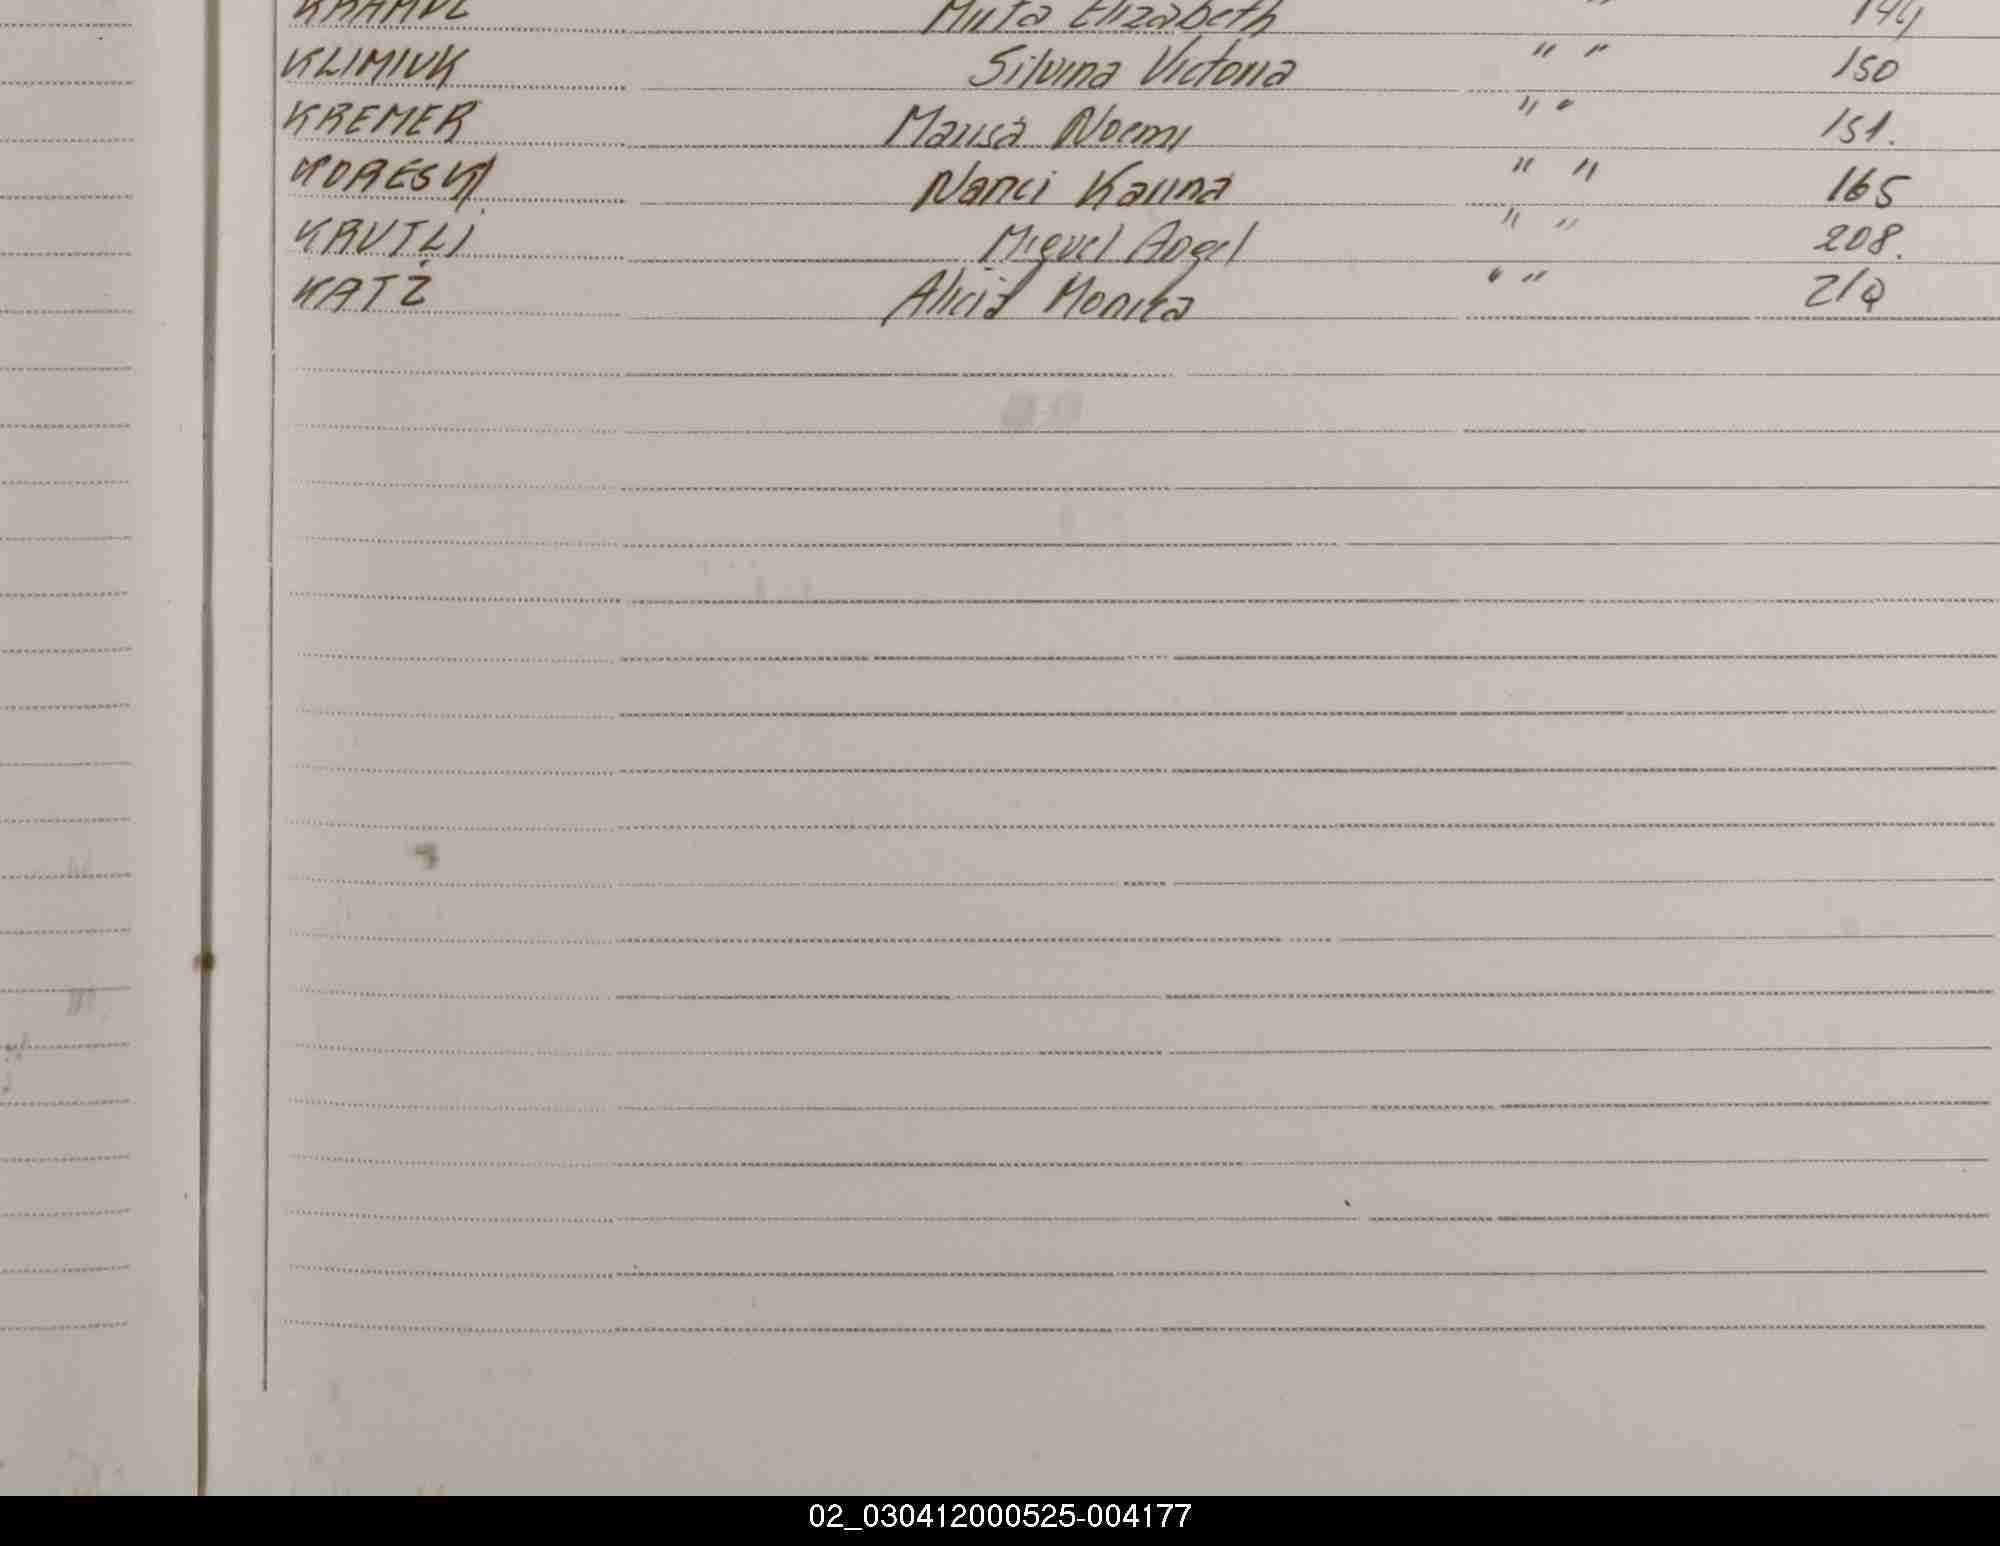 Elizabeth " 144
KLIMIUK Silvina Victoria " " 150
KREMER Marisa Noemi " " 151.
KORESKI Nanci Karina " " 165
KRUTLI Miguel Angel " " 208.
KATZ Alicia Monica " "
02_030412000525-004177